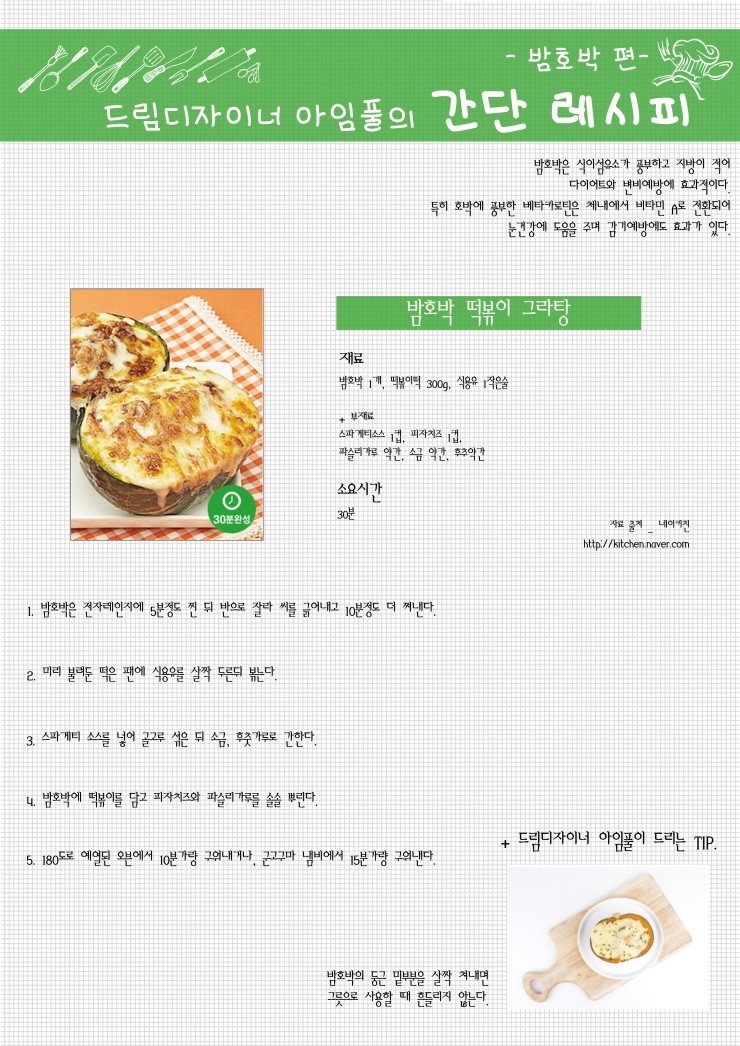 - 밤호박 편-
드림디자이너 아임풀의 간단 레시피
밤호박은 식이섬유소가 풍부하고 지방이 적어
다이어트와 변비예방에 효과적이다.
특히 호박에 풍부한 베타카로틴은 체내에서 비타민 A로 전환되어
눈건강에 도움을 주며 감기예방에도 효과가 있다.
밤호박 떡볶이 그라탕
재료
밤호박 1개, 떡볶이떡 300g, 식용유 1작은술
+ 부재료
스파게티소스 1컵, 피자치즈 1컵,
파슬리가루 약간, 소금 약간, 후추약간
소요시간
30분
30분완성
자료 출처 _ 네이버키친
http://kitchen.naver.com
1. 밤호박은 전자레인지에 5분정도 찐 뒤 반으로 잘라 씨를 긁어내고 10분정도 더 쪄낸다.
2. 미리 불려둔 떡은 팬에 식용유를 살짝 두른뒤 볶는다.
3. 스파게티 소스를 넣어 골고루 섞은 뒤 소금, 후춧가루로 간한다.
4. 밤호박에 떡볶이를 담고 피자치즈와 파슬리가루를 솔솔 뿌린다.
5. 180도로 예열된 오븐에서 10분가량 구워내거나, 군고구마 냄비에서 15분가량 구워낸다.
+ 드림디자이너 아임풀이 드리는 TIP.
밤호박의 둥근 밑부분을 살짝 쳐내면
그릇으로 사용할 때 흔들리지 않는다.